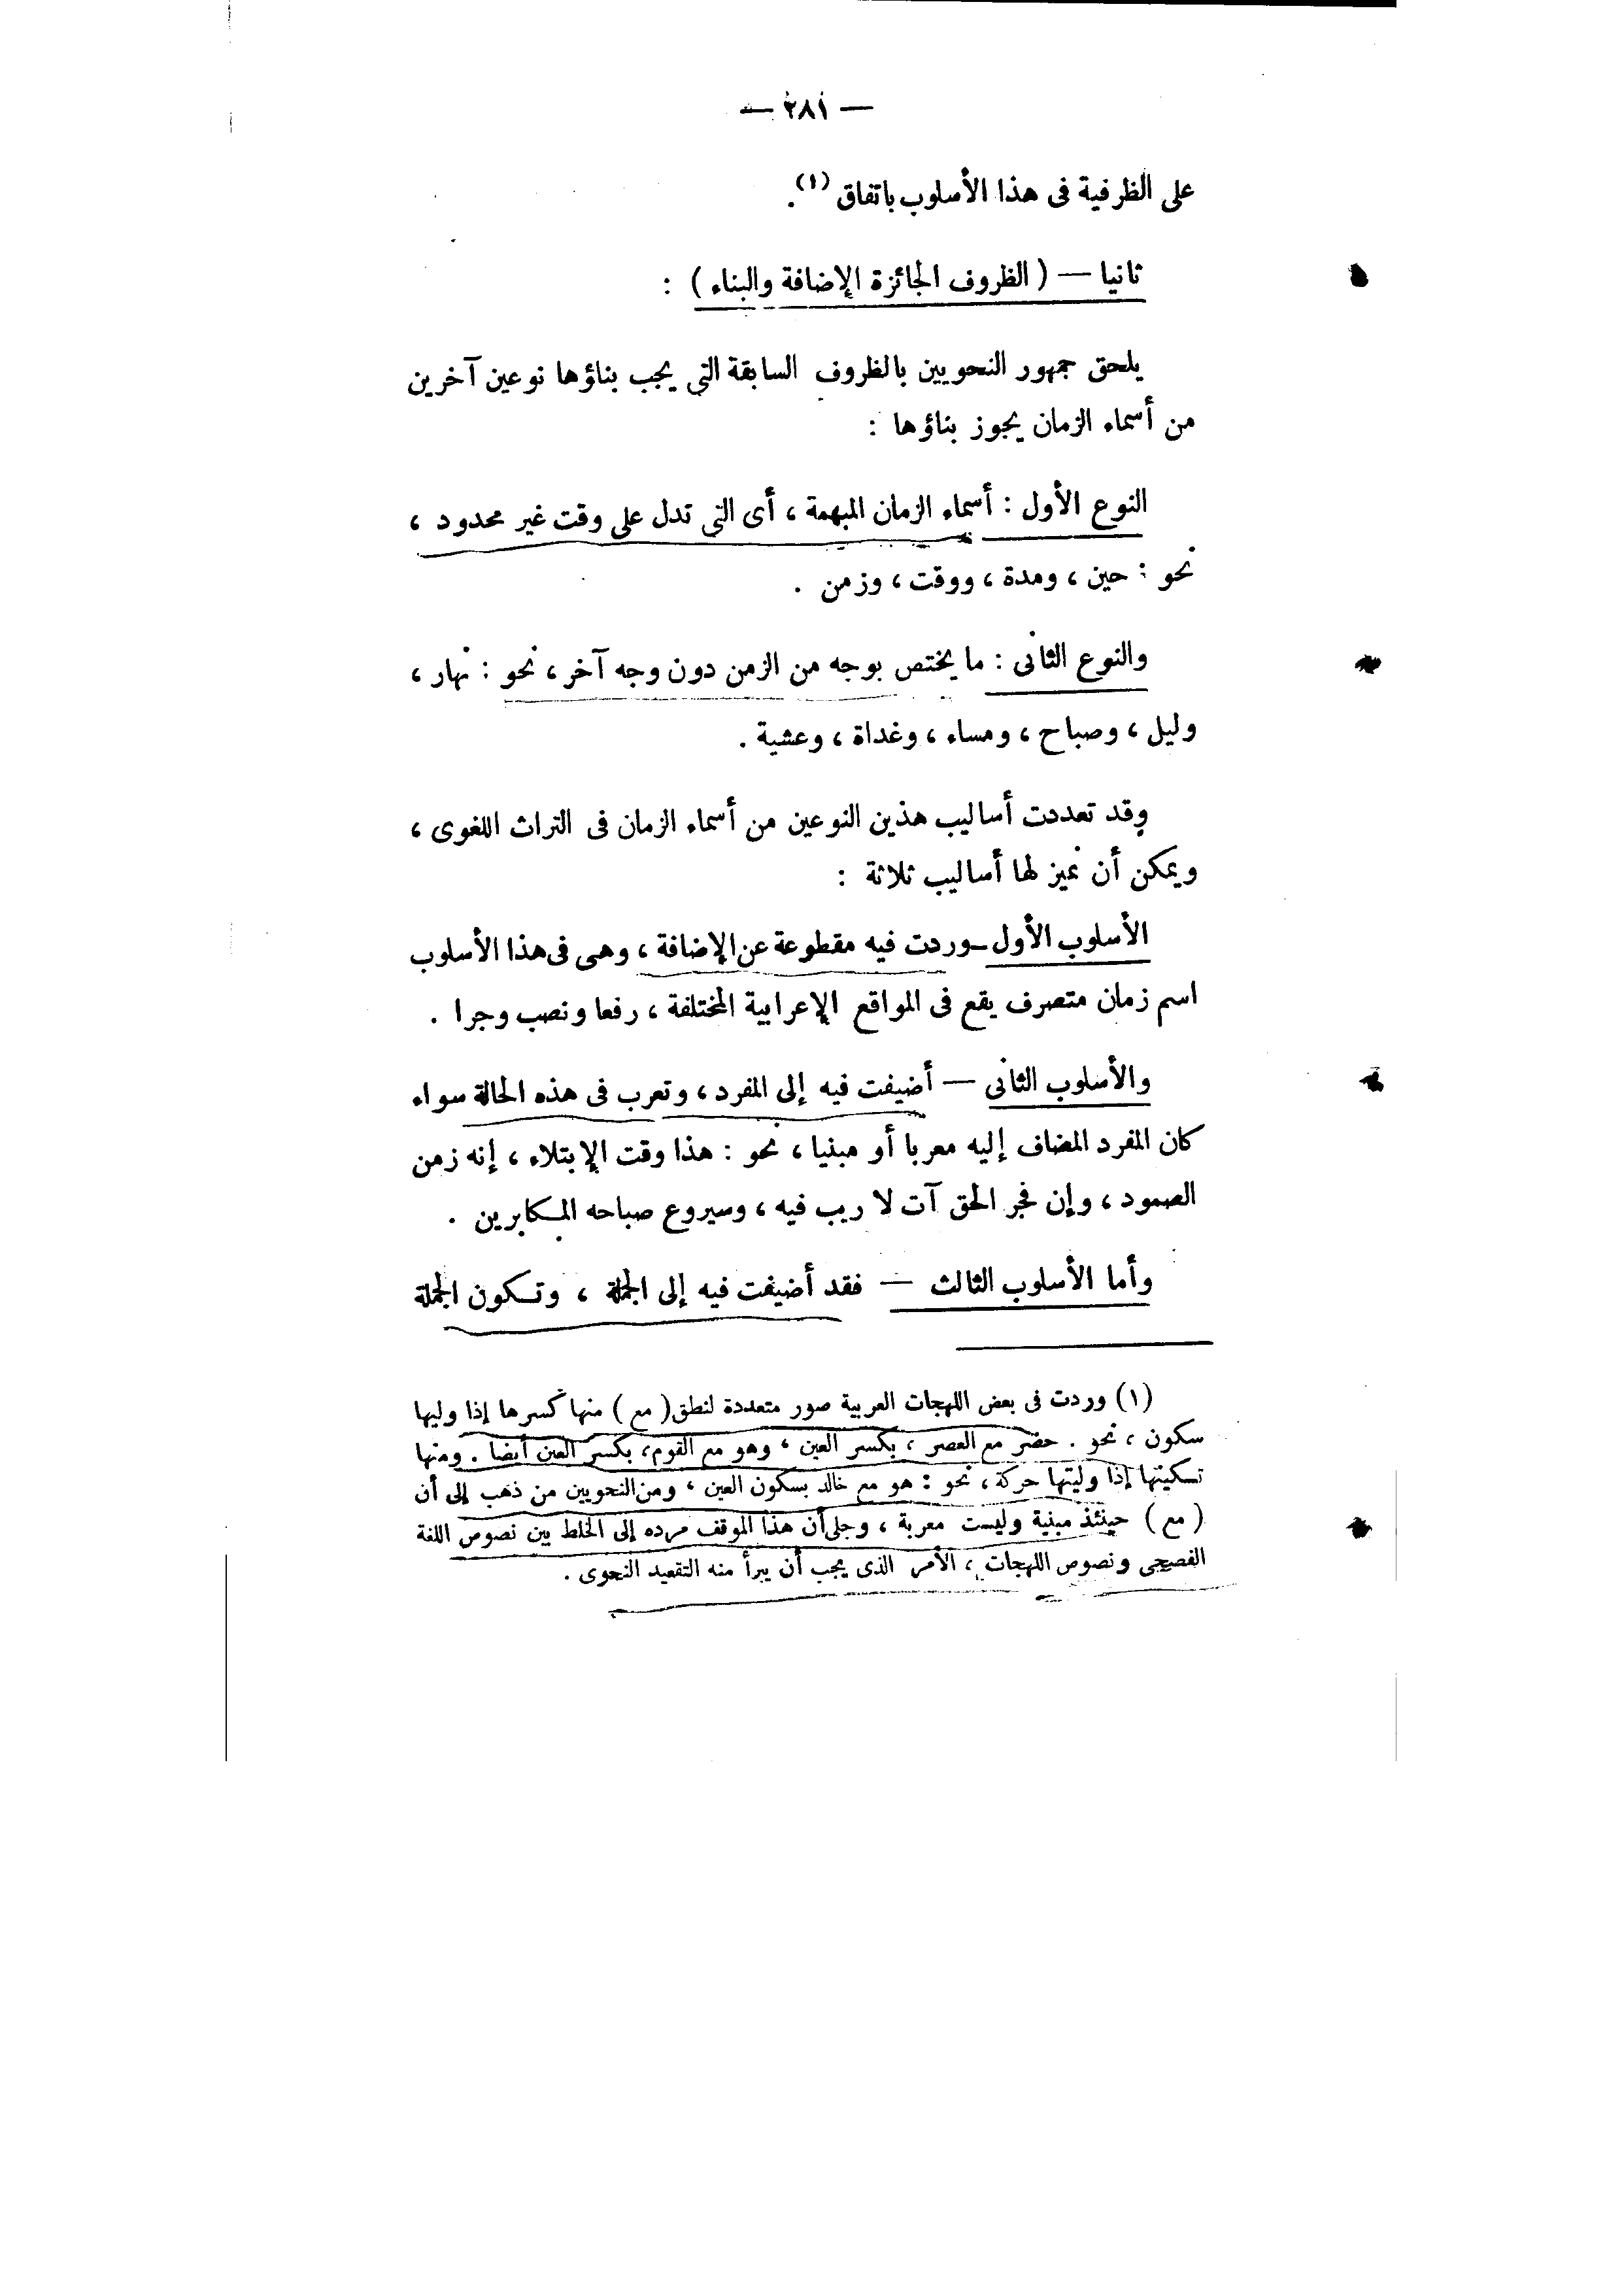 — ٢٨١ —
على الظرفية فى هذا الأسلوب باتفاق (١) .
ثانيا — ( الظروف الجائزة الإضافة والبناء ) :
يلحق جمهور النحويين بالظروف السابقة التى يجب بناؤها نوعين آخرين
من أسماء الزمان يجوز بناؤها :
النوع الأول : أسماء الزمان المبهمة ، أى التى تدل على وقت غير محدود ،
نحو : حين ، ومدة ، ووقت ، وزمن .
والنوع الثانى : ما يختص بوجه من الزمن دون وجه آخر ، نحو : نهار ،
وليل ، وصباح ، ومساء ، وغداة ، وعشية .
وقد تعددت أساليب هذين النوعين من أسماء الزمان فى التراث اللغوى ،
ويمكن أن نميز لها أساليب ثلاثة :
الأسلوب الأول — وردت فيه مقطوعة عن الإضافة ، وهى فى هذا الأسلوب
اسم زمان متصرف يقع فى المواقع الإعرابية المختلفة ، رفعا ونصب وجرا .
والأسلوب الثانى — أضيفت فيه إلى المفرد ، وتعرب فى هذه الحالة سواء
كان المفرد المضاف إليه معربا أو مبنيا ، نحو : هذا وقت الإبتلاء ، إنه زمن
الصمود ، وإن فجر الحق آت لا ريب فيه ، وسيروع صباحه المكابرين .
وأما الأسلوب الثالث — فقد أضيفت فيه إلى الجملة ، وتكون الجملة
(١) وردت فى بعض اللهجات العربية صور متعددة لنطق ( مع ) منها كسرها إذا وليها
سكون ، نحو . حضر مع العصر ، بكسر العين ، وهو مع القوم ، بكسر العين أيضا . ومنها
تسكينها إذا وليتها حركة ، نحو : هو مع خالد بسكون العين ، ومن النحويين من ذهب إلى أن
( مع ) حينئذ مبنية وليست معربة ، وجلى أن هذا الموقف مرده إلى الخلط بين نصوص اللغة
الفصحى ونصوص اللهجات ، الأمر الذى يجب أن يبرأ منه التقعيد النحوى .